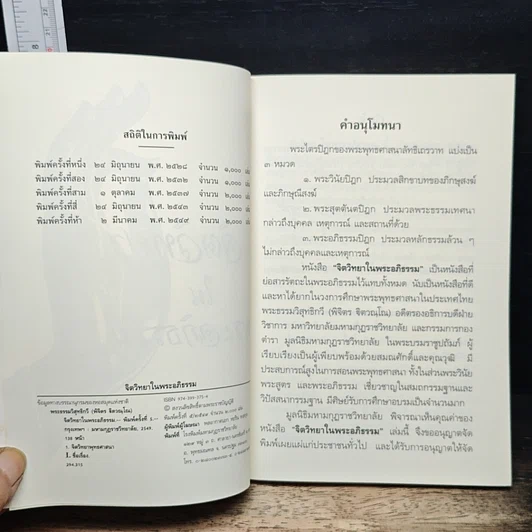 สถิติในการพิมพ์
พิมพ์ครั้งที่หนึ่ง ๒๔ มิถุนายน พ.ศ. ๒๕๒๘ จำนวน ๑,๐๐๐
พิมพ์ครั้งที่สอง ๒๔ มิถุนายน พ.ศ. ๒๕๓๒ จำนวน ๑,๐๐๐
พิมพ์ครั้งที่สาม ๑ ตุลาคม พ.ศ. ๒๕๓๗ จำนวน ๒,๐๐๐
พิมพ์ครั้งที่สี่ ๒๔ มิถุนายน พ.ศ. ๒๕๔๓ จำนวน ๒,๐๐๐
พิมพ์ครั้งที่ห้า ๒ มีนาคม พ.ศ. ๒๕๔๙ จำนวน ๒,๐๐๐
จิตวิทยาในพระอภิธรรม
ข้อมูลทางบรรณานุกรมของหอสมุดแห่งชาติ
พระธรรมวิสุทธิกวี (พิจิตร ฐิตวณฺโณ)
จิตวิทยาในพระอภิธรรม.-- พิมพ์ครั้งที่
กรุงเทพฯ : มหามกุฏราชวิทยาลัย, 2549.
หน้า
1. จิตวิทยาพุทธศาสนา
I. ชื่อเรื่อง.
294.313
ISBN
คำอนุโมทนา
พระไตรปิฎกของพระพุทธศาสนาลัทธิเถรวาท แบ่งเป็น
๓ หมวด
๑. พระวินัยปิฎก ประมวลสิกขาบทของภิกษุสงฆ์
และภิกษุณีสงฆ์
๒. พระสุตตันตปิฎก ประมวลพระธรรมเทศนา
กล่าวถึงบุคคล เหตุการณ์ และสถานที่ด้วย
๓. พระอภิธรรมปิฎก ประมวลหลักธรรมล้วน ๆ
ไม่กล่าวถึงบุคคลและเหตุการณ์
หนังสือ "จิตวิทยาในพระอภิธรรม" เป็นหนังสือที่
ย่อสารัตถะในพระอภิธรรมไว้แทบทั้งหมด นับเป็นหนังสือที่ดี
และหาได้ยากในวงการศึกษาพระพุทธศาสนาในประเทศไทย
พระธรรมวิสุทธิกวี (พิจิตร ฐิตวณฺโณ) อดีตรองอธิการบดีฝ่าย
วิชาการ มหาวิทยาลัยมหามกุฏราชวิทยาลัย และกรรมการกอง
ตำรา มูลนิธิมหามกุฏราชวิทยาลัย ในพระบรมราชูปถัมภ์ ผู้
เรียบเรียงเป็นผู้เพียบพร้อมด้วยสมณศักดิ์และคุณวุฒิ มี
ประสบการณ์สูงในการสอนพระพุทธศาสนา ทั้งในส่วนพระวินัย
พระสูตร และพระอภิธรรม เชี่ยวชาญในสมถกรรมฐานและ
วิปัสสนากรรมฐาน มีศิษย์รับการศึกษาอบรมเป็นจำนวนมาก
มูลนิธิมหามกุฏราชวิทยาลัย พิจารณาเห็นคุณค่าของ
หนังสือ "จิตวิทยาในพระอภิธรรม" เล่มนี้ จึงขออนุญาตจัด
พิมพ์เผยแผ่แก่ประชาชนทั่วไป และได้รับการอนุญาตให้จัด